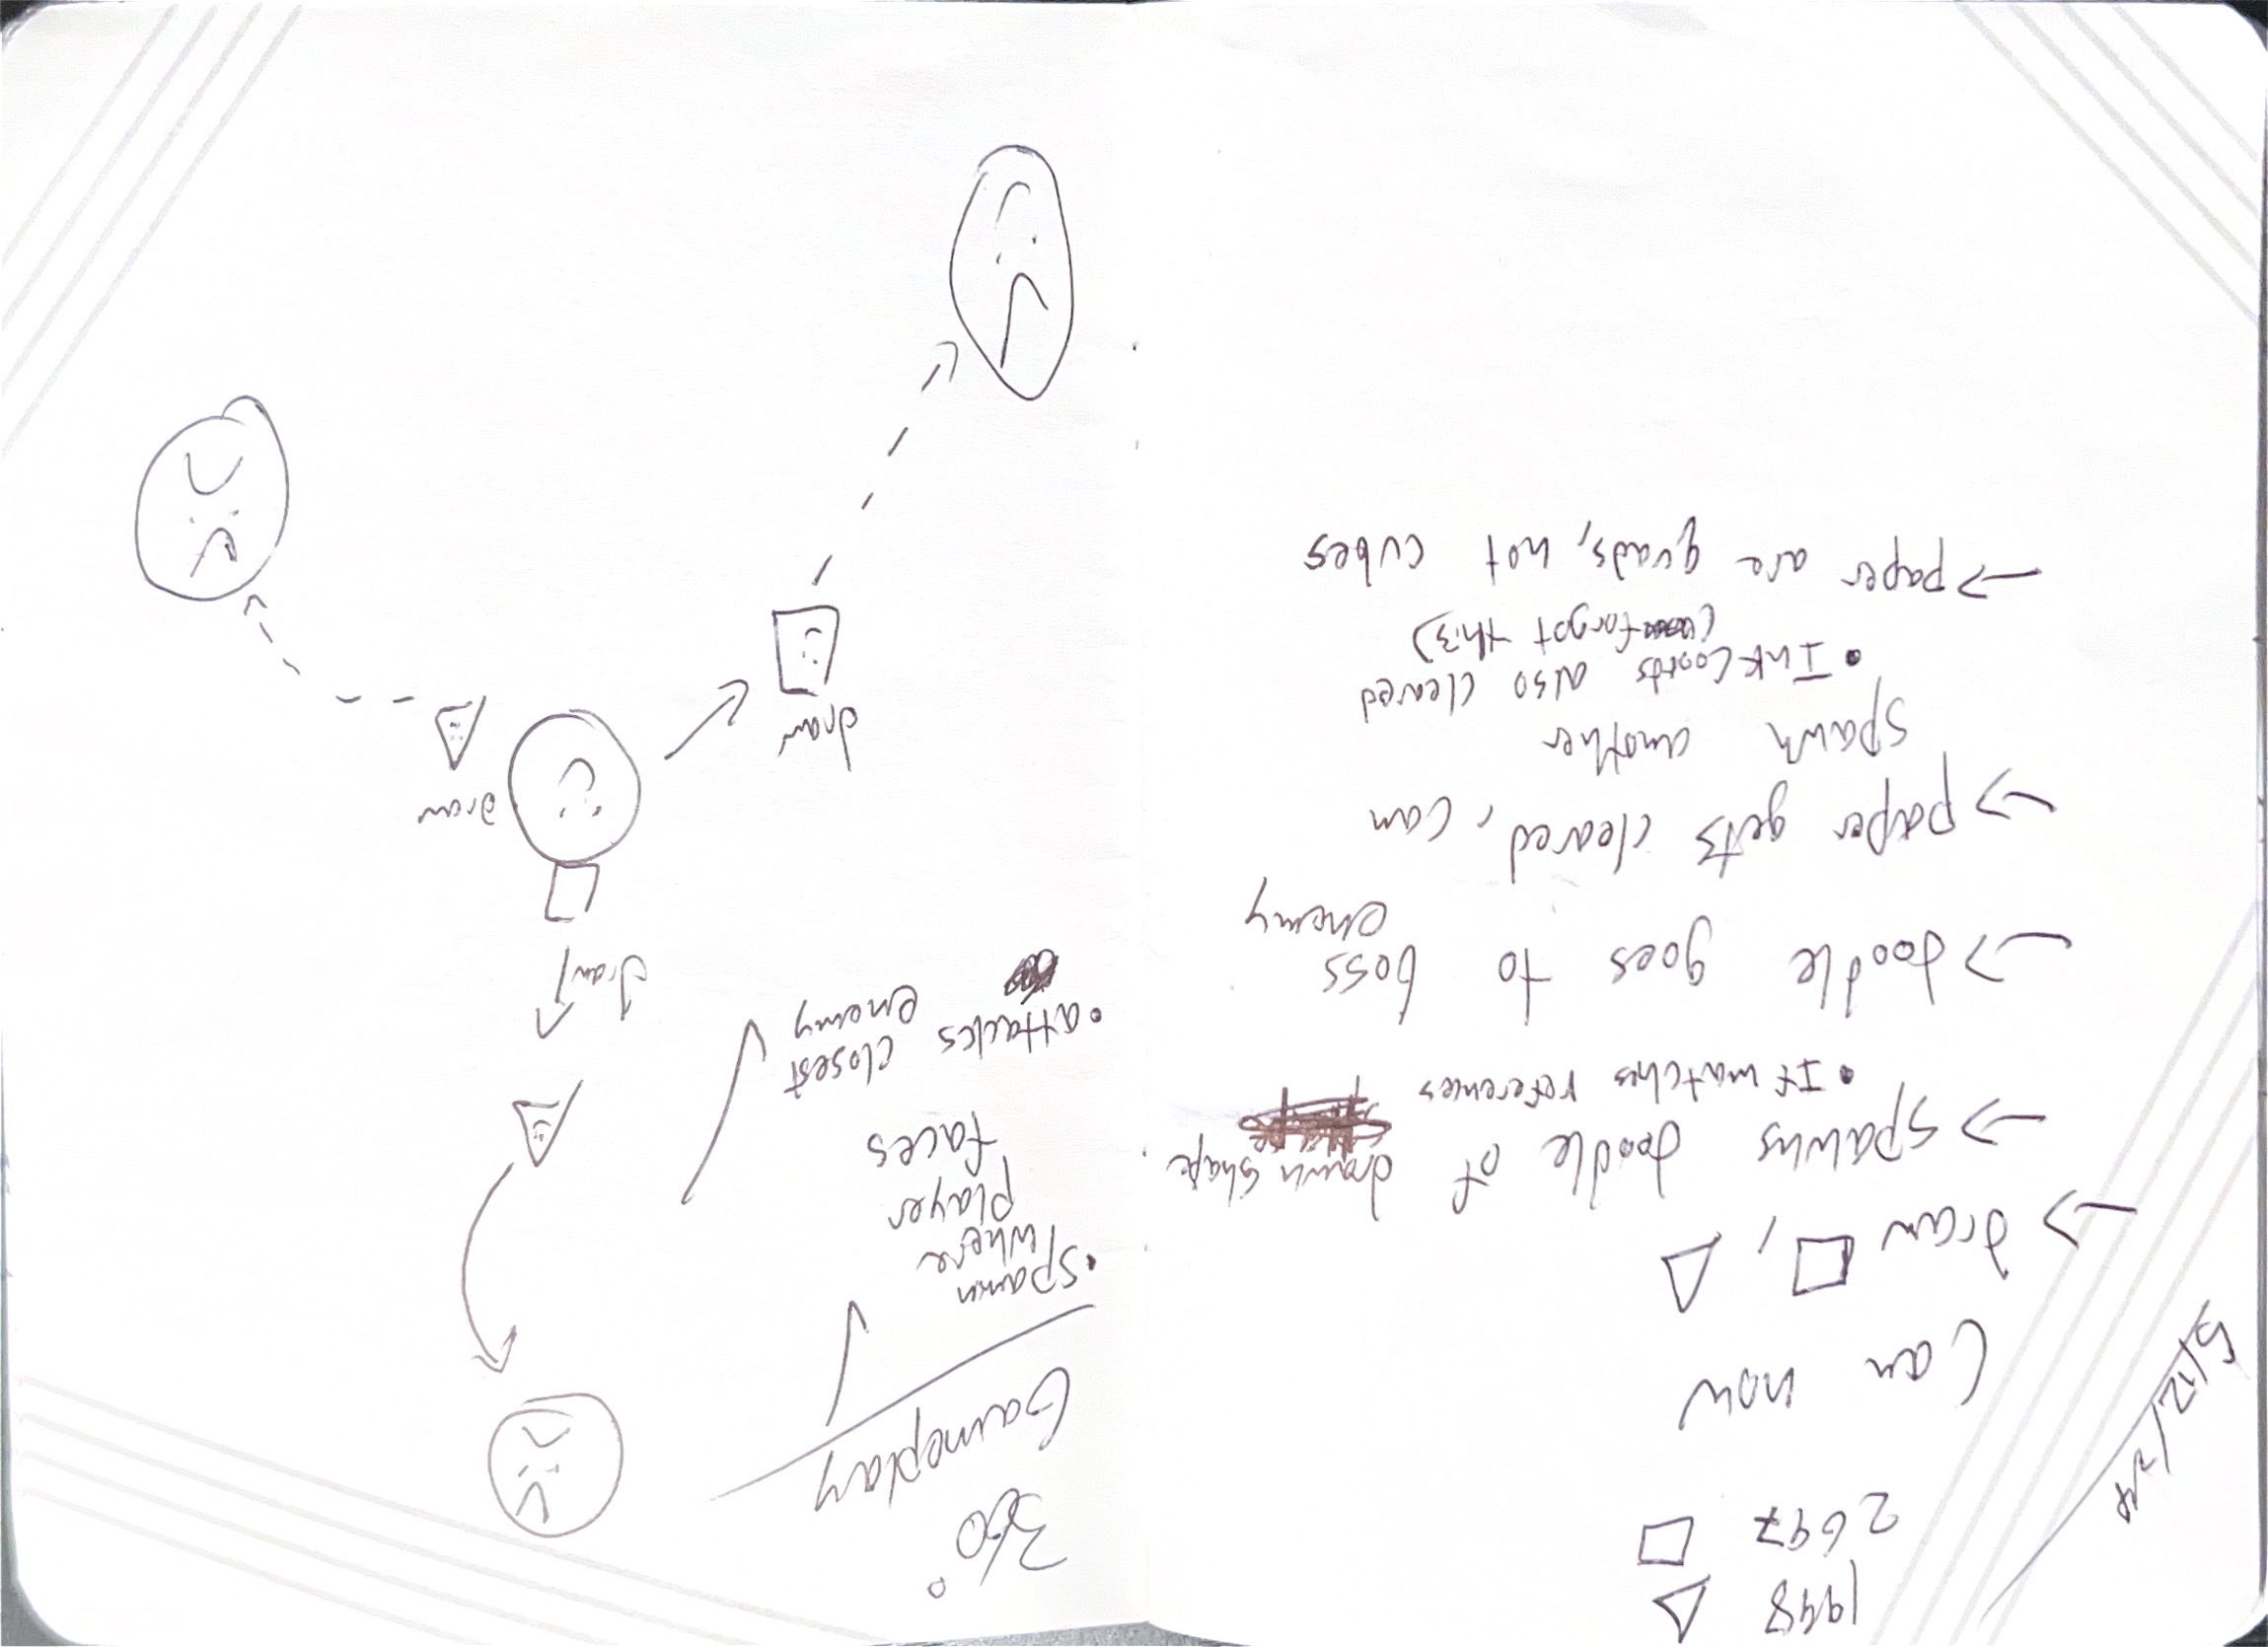 1998
2697
5/12/24
Can now
→ draw □, △
→ spawns doodle of drawn shape.
• If matches references
→ doodle goes to boss
enemy
→ paper gets cleared, can
spawn another
• InkCoords also cleared
(forgot this)
→ paper are quads, not cubes
360°
Gameplay
• spawn
where
player
faces
• attacks closest
enemy
draw
draw
draw